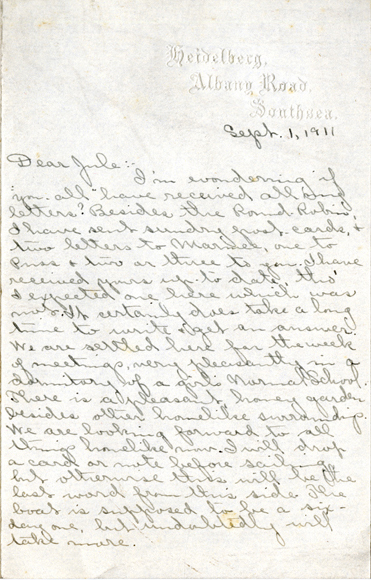 Heidelberg,
Albany Road,
Southsea.
Sept. 1, 1911
Dear Jule:-
I'm wondering if
you all have received all our
letters? Besides the Round Robin
I have sent sundry post cards, &
two letters to Mamee, one to
Puss & two or three to you. I have
received yours up to date, tho'
I expected one here which was
not. It certainly does take a long
time to write & get an answer.
We are settled here for the week
of meetings, very pleasantly in a
dormitory of a girls Normal School.
There is a pleasant, homey garden
besides other homelike surroundings.
We are looking forward to all
things homelike now. I will drop
a card or note before sailing
but otherwise this will be the
last word from this side. The
boat is supposed to be a six-
day one, but undoubtedly will
take more.